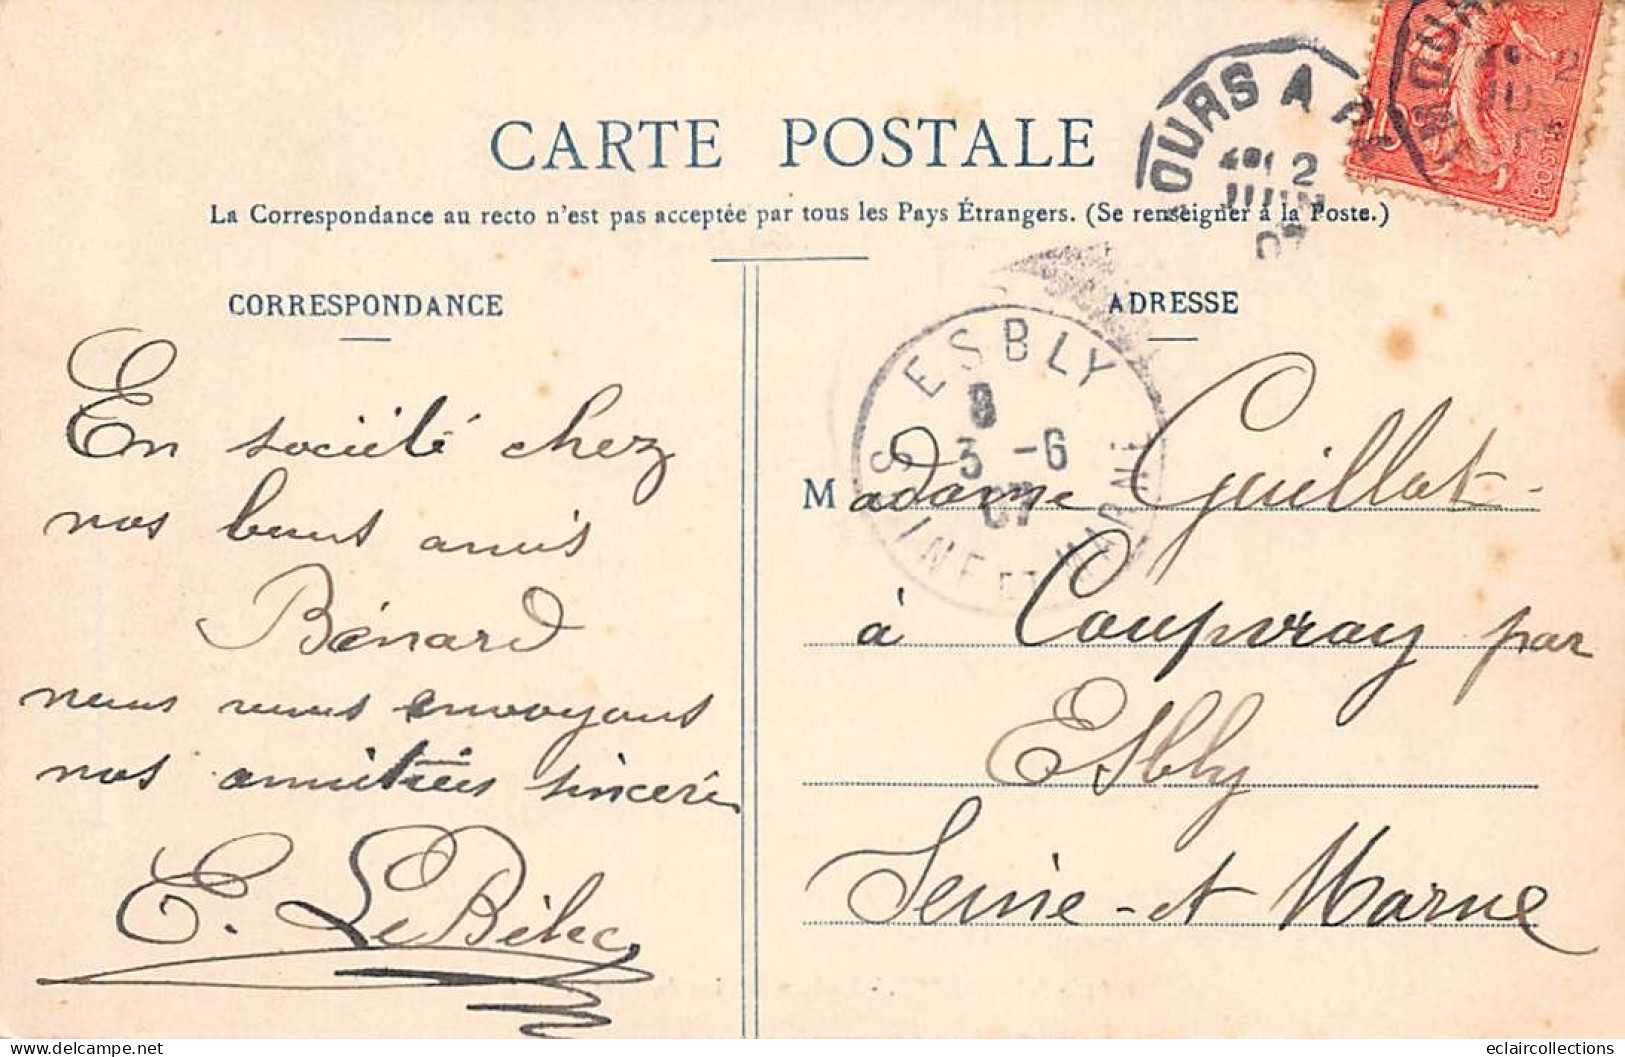 CARTE POSTALE
La Correspondance au recto n'est pas acceptée par tous les Pays Étrangers. (Se renseigner à la Poste.)
CORRESPONDANCE
En société chez
nos bons amis
Bénard
nous vous envoyons
nos amitiées sincère
E. Le
ADRESSE
Madame Guillot
à Coupvray par
Esbly
Seine-et Marne
ESBLY
8
3 -6
07
SEINE ET MARNE
TOURS A
2
JUIN
07
POSTES
delcampe.net
eclaircollections